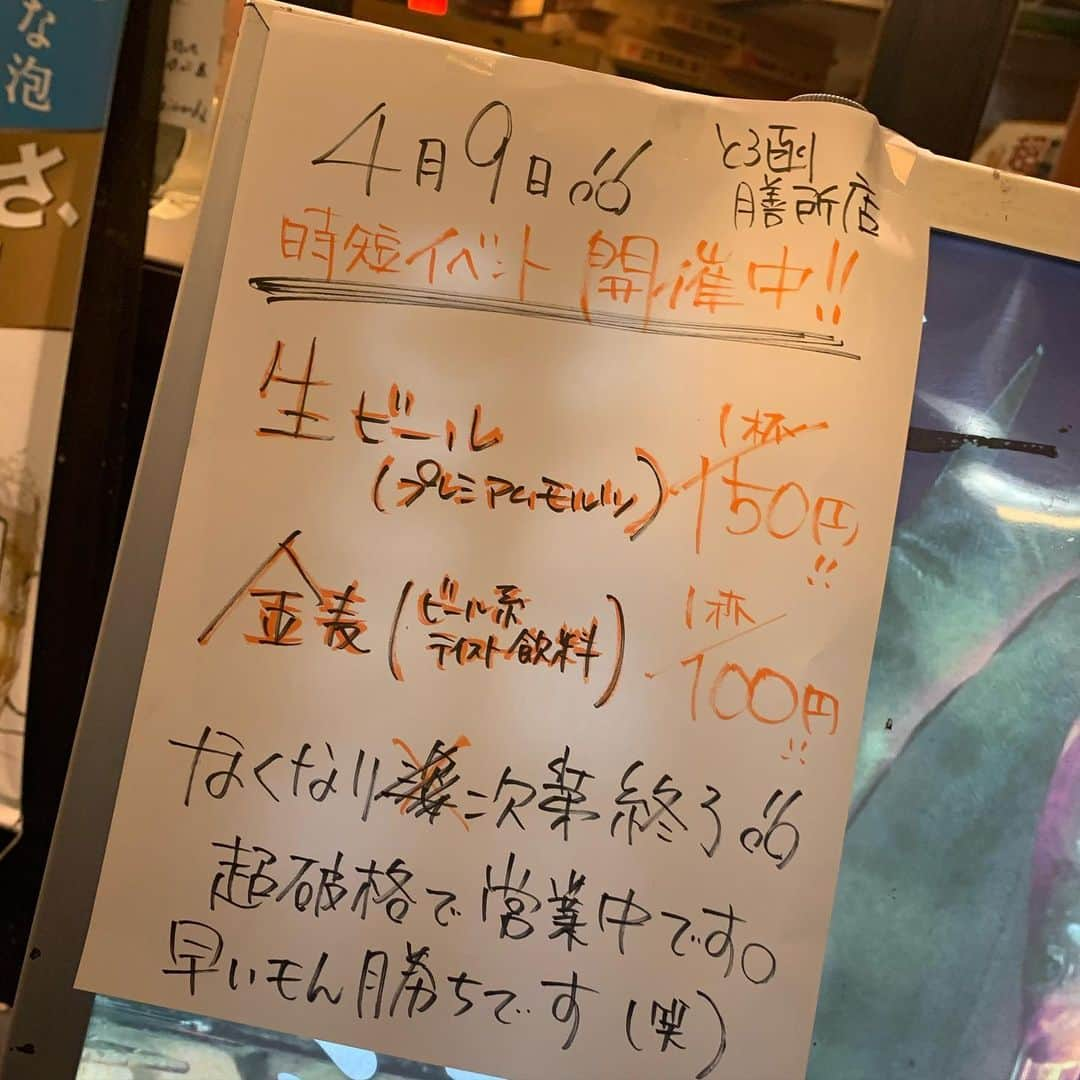 な泡
さ、
4月9日!!
とろ酌
膳所店
時短イベント 開催中!!
生ビール
(プレミアムモルツ)
1杯
150円!!
金麦(ビール系
テイスト飲料)
1杯
100円!!
なくなり次第終了!!
超破格で営業中です。
早いモん勝ちです(笑)